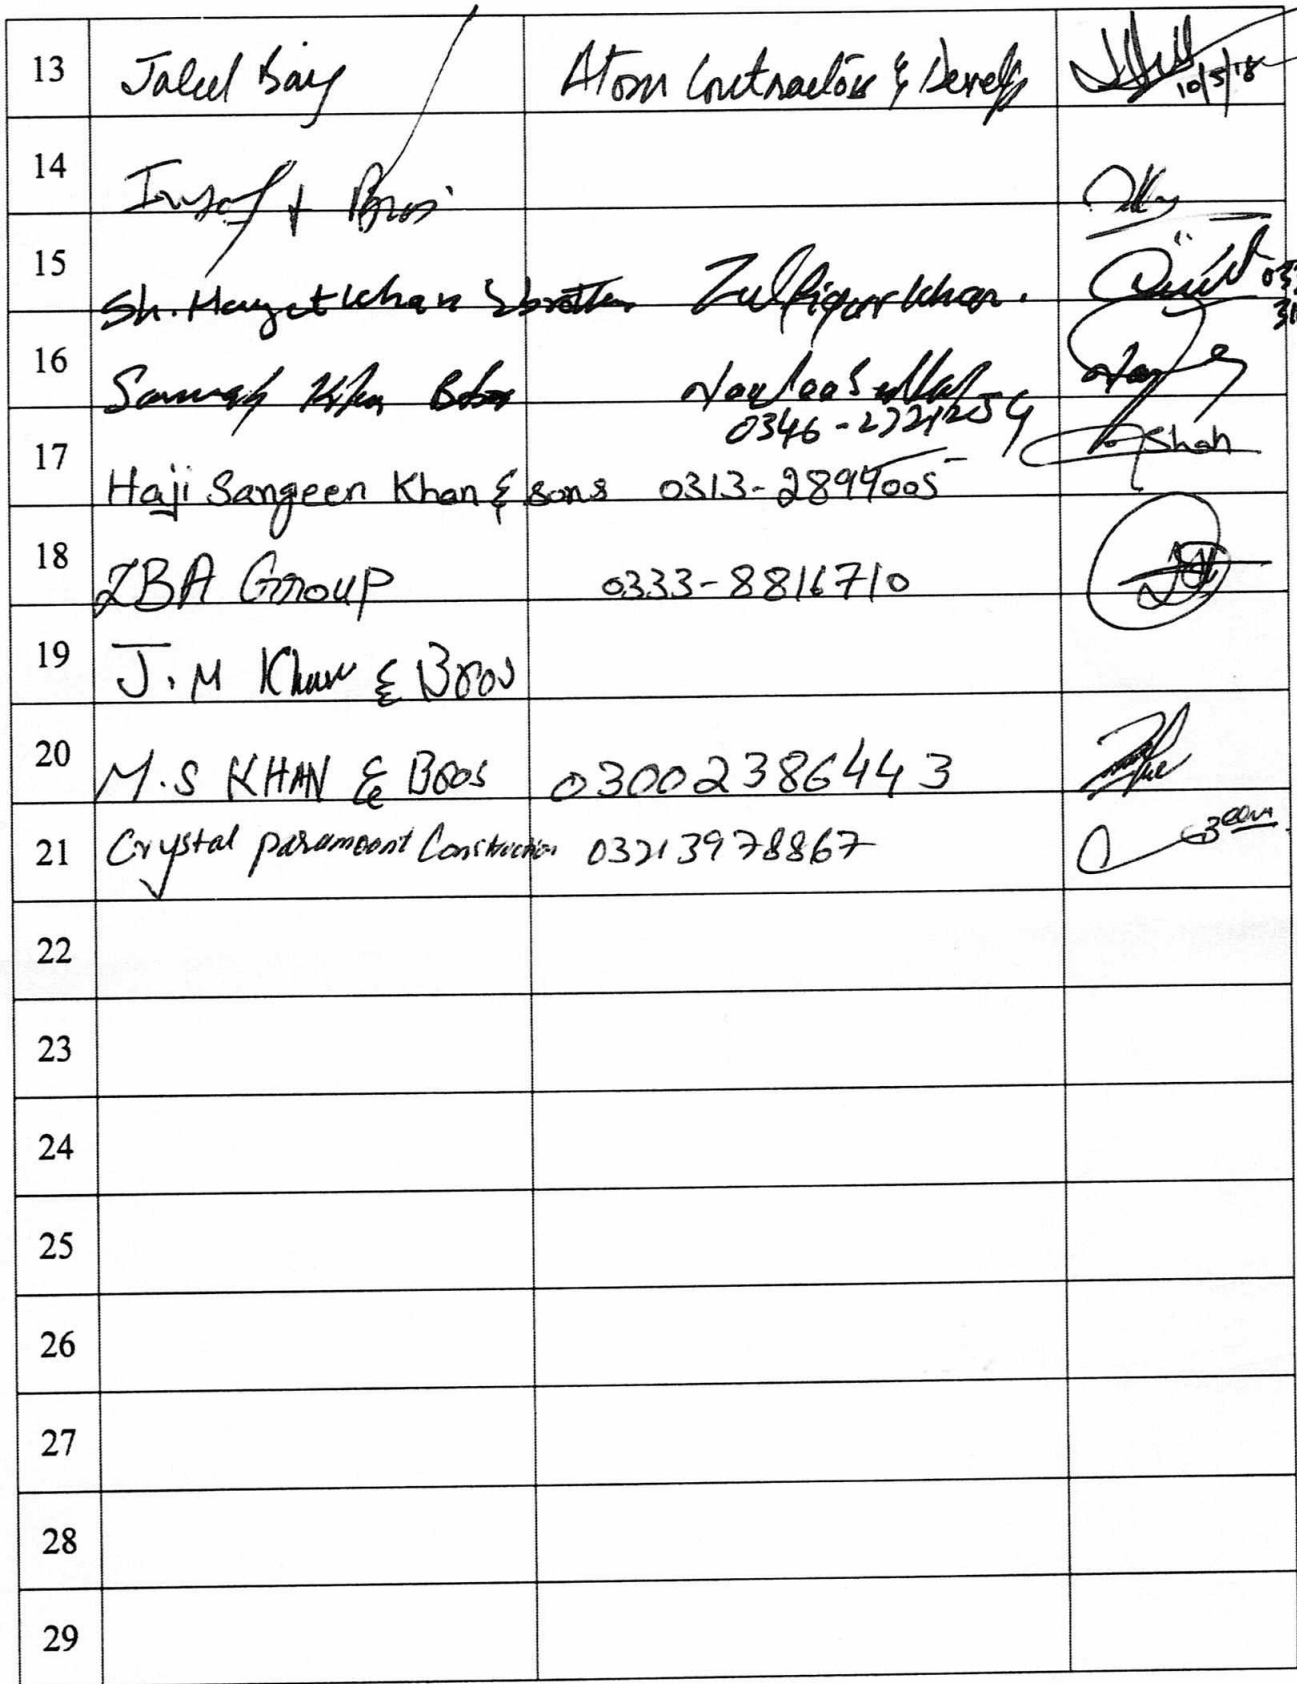 13 Jalul Baig Atom Contractors & Develp
10/5/18
14 & Bros
15 Sh. Hayat Khan & brother Zulfiqar Khan. 033
16
0346-2721254
17 Haji Sangeen Khan & sons 0313-2899005 Shah
18 ZBA Group 0333-8816710
19 J.M Khan & Bros
20 M.S KHAN & Bros 03002386443
21 Crystal paramount Construction 03213978867
22
23
24
25
26
27
28
29